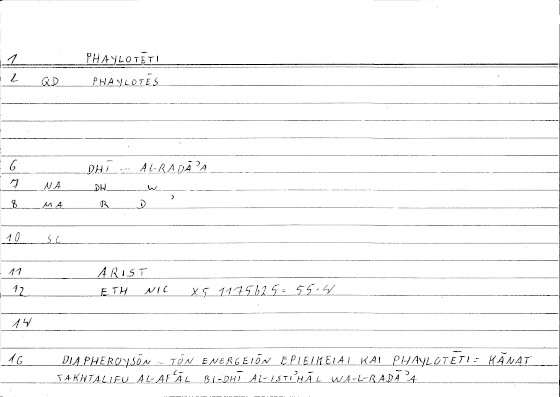 1 PHAYLOTĒTI
2 QD PHAYLOTĒS
6 DHĪ ... AL-RADĀʾA
7 NA DH W
8 MA R D ʾ
10 SC
11 ARIST
12 ETH NIC X5 1175b25 = 55.4
14
16 DIAPHEROYSŌN - TŌN ENERGEIŌN EPIEIKEIAI KAI PHAYLOTĒTI = KĀNAT
TAKHTALIFU AL-AFʿĀL BI-DHĪ AL-ISTIʾHĀL WA-L-RADĀʾA